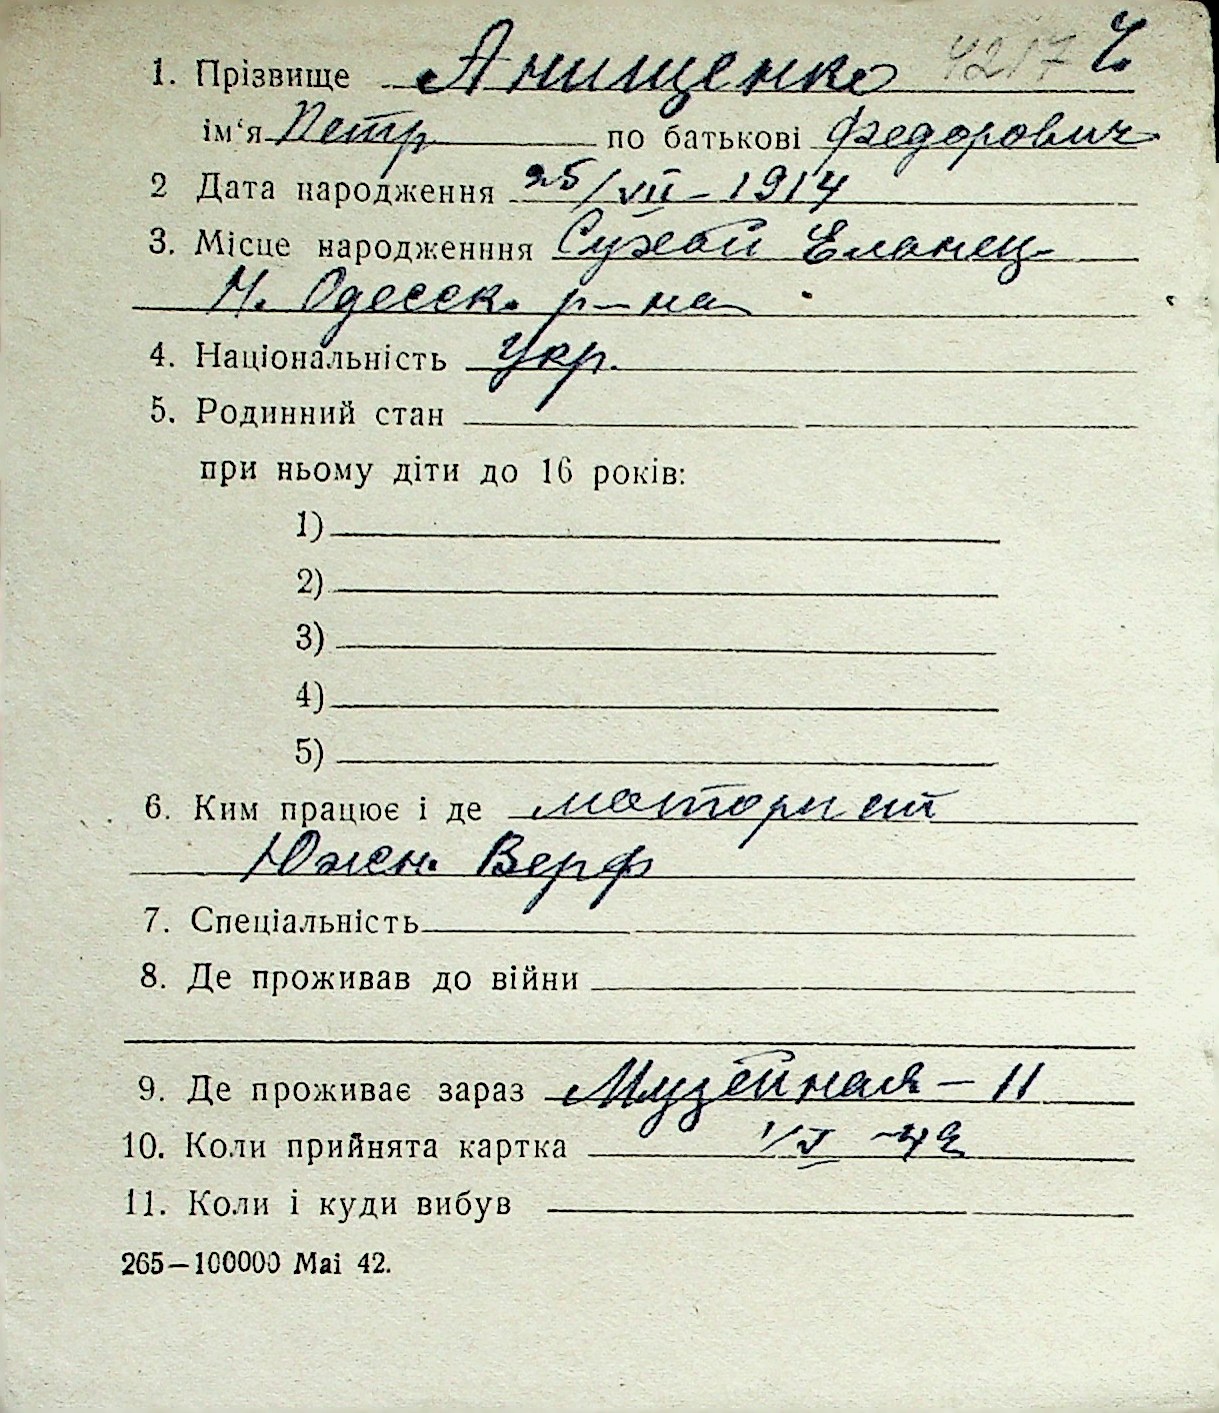 1. Прізвище Анищенко 4217 Ч.
ім‘я Петр по батькові Федорович
2 Дата народження 25/VII – 1914
3. Місце народженння Сухой Еланец
Н. Одесск. р-на
4. Національність Укр.
5. Родинний стан
при ньому діти до 16 років:
1)
2)
3)
4)
5)
6. Ким працює і де моторист
Южн. Верф
7. Спеціальність
8. Де проживав до війни
9. Де проживає зараз Музейная – 11
10. Коли прийнята картка –42
11. Коли і куди вибув
265—100000 Маі 42.